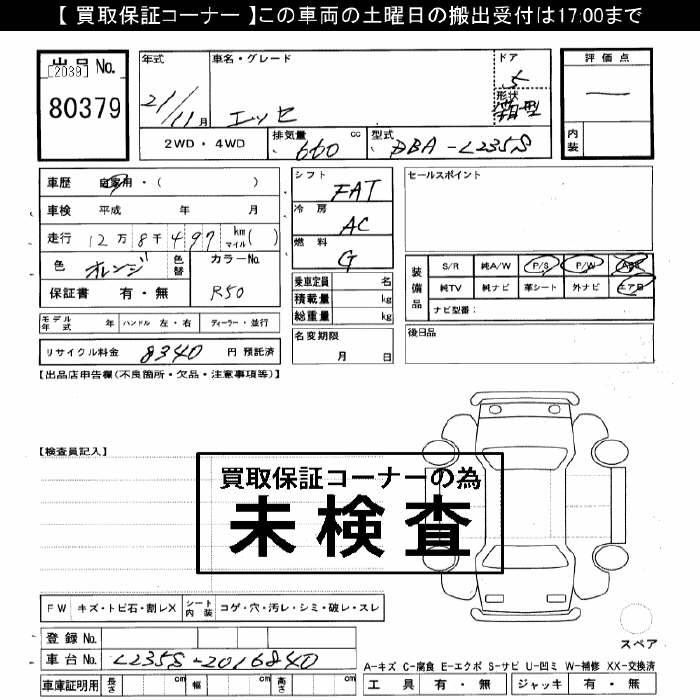 【 買取保証コーナー 】この車両の土曜日の搬出受付は17:00まで
出品 No.
[2039]
80379
年式
21/11月
車名・グレード
エッセ
ドア
5
形状
箱型
評価点
—
内装
2WD・4WD
排気量 660 cc
型式 DBA-L235S
車歴 自家用・( )
車検 平成 年 月
走行 12万 8千 497 km マイル ( )
色 オレンジ 色替
カラーNo. R50
保証書 有・無
シフト FAT
冷房 AC
燃料 G
乗車定員 名
積載量 kg
総重量 kg
セールスポイント
装備品
S/R 純A/W P/S P/W ABS
純TV 純ナビ 革シート 外ナビ エアB
ナビ型番:
モデル年式 年 ハンドル 左・右 ディーラー・並行
リサイクル料金 8340 円 預託済
名変期限 月 日
後日品
【出品店申告欄(不良箇所・欠品・注意事項等)】
【検査員記入】
買取保証コーナーの為
未検査
FW キズ・トビ石・割レX シート内装 コゲ・穴・汚レ・シミ・破レ・スレ
スペア
登録 No.
車台 No. L235S-2016840
A-キズ C-腐食 E-エクボ S-サビ U-凹ミ W-補修 XX-交換済
車庫証明用 長さ cm 幅 cm 高さ cm
工具 有・無 ジャッキ 有・無